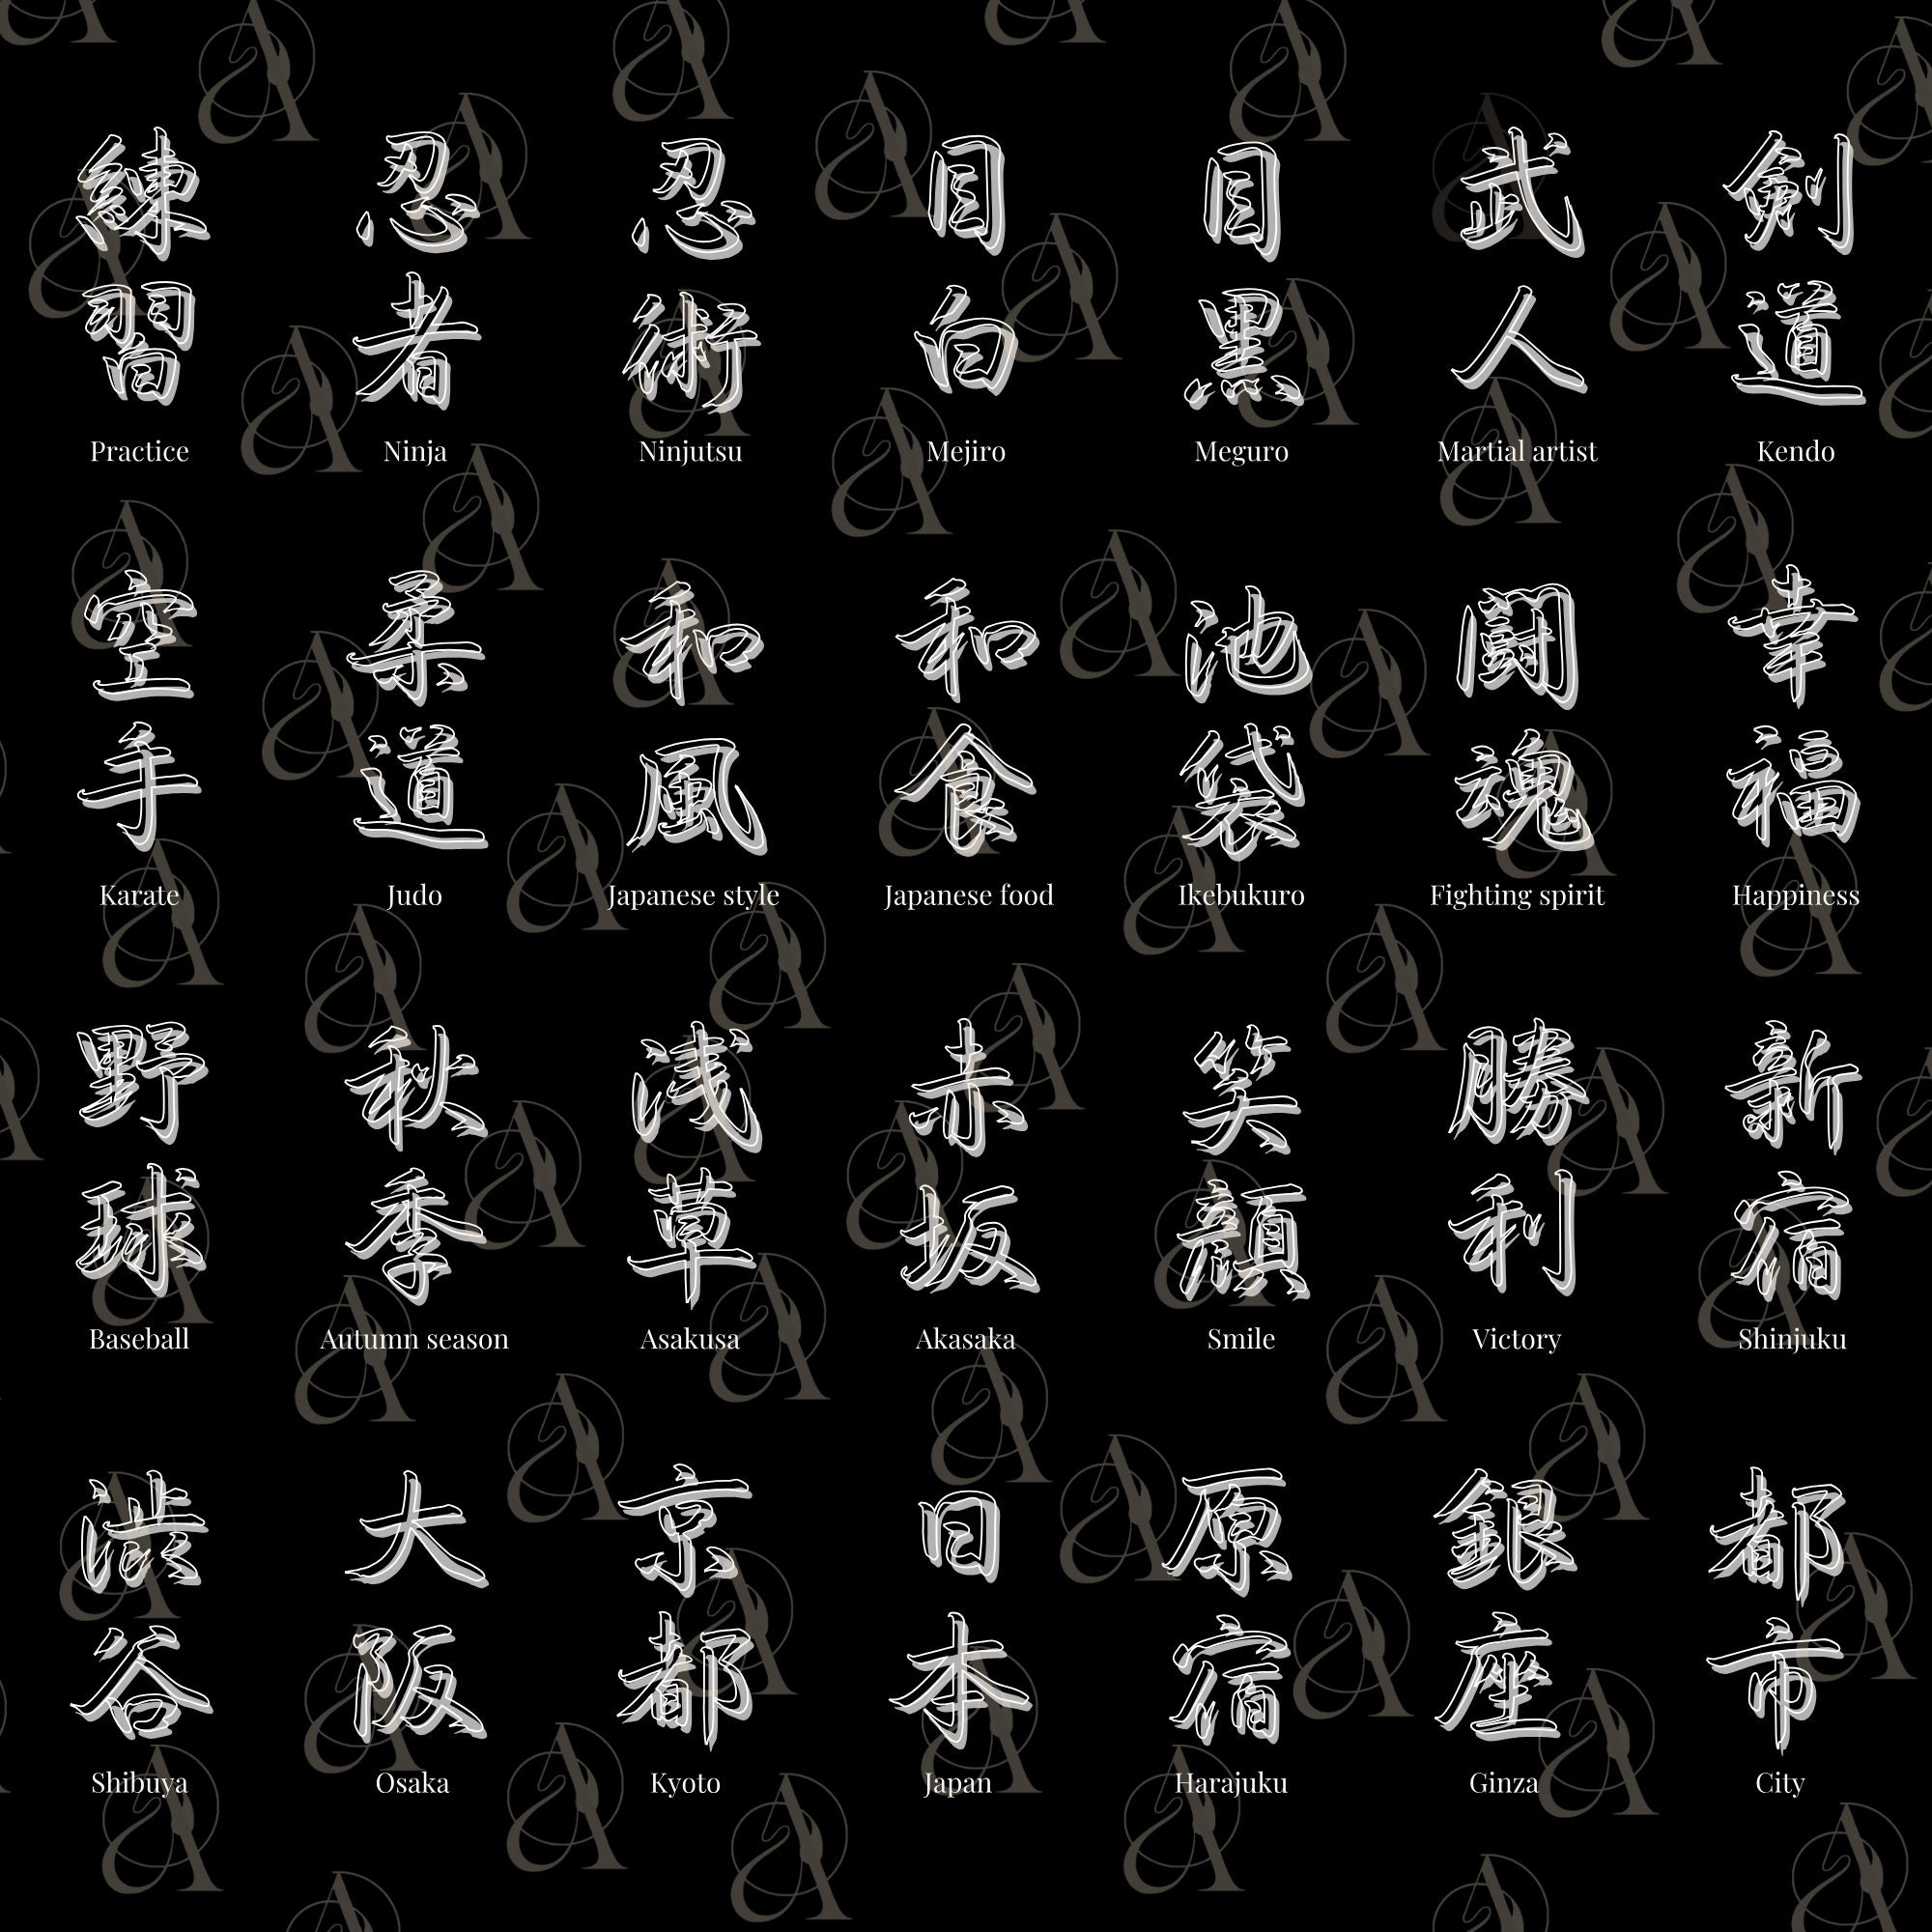 練習
Practice
忍者
Ninja
忍術
Ninjutsu
目白
Mejiro
目黒
Meguro
武人
Martial artist
剣道
Kendo
空手
Karate
柔道
Judo
和風
Japanese style
和食
Japanese food
池袋
Ikebukuro
闘魂
Fighting spirit
幸福
Happiness
野球
Baseball
秋季
Autumn season
浅草
Asakusa
赤坂
Akasaka
笑顔
Smile
勝利
Victory
新宿
Shinjuku
渋谷
Shibuya
大阪
Osaka
京都
Kyoto
日本
Japan
原宿
Harajuku
銀座
Ginza
都市
City